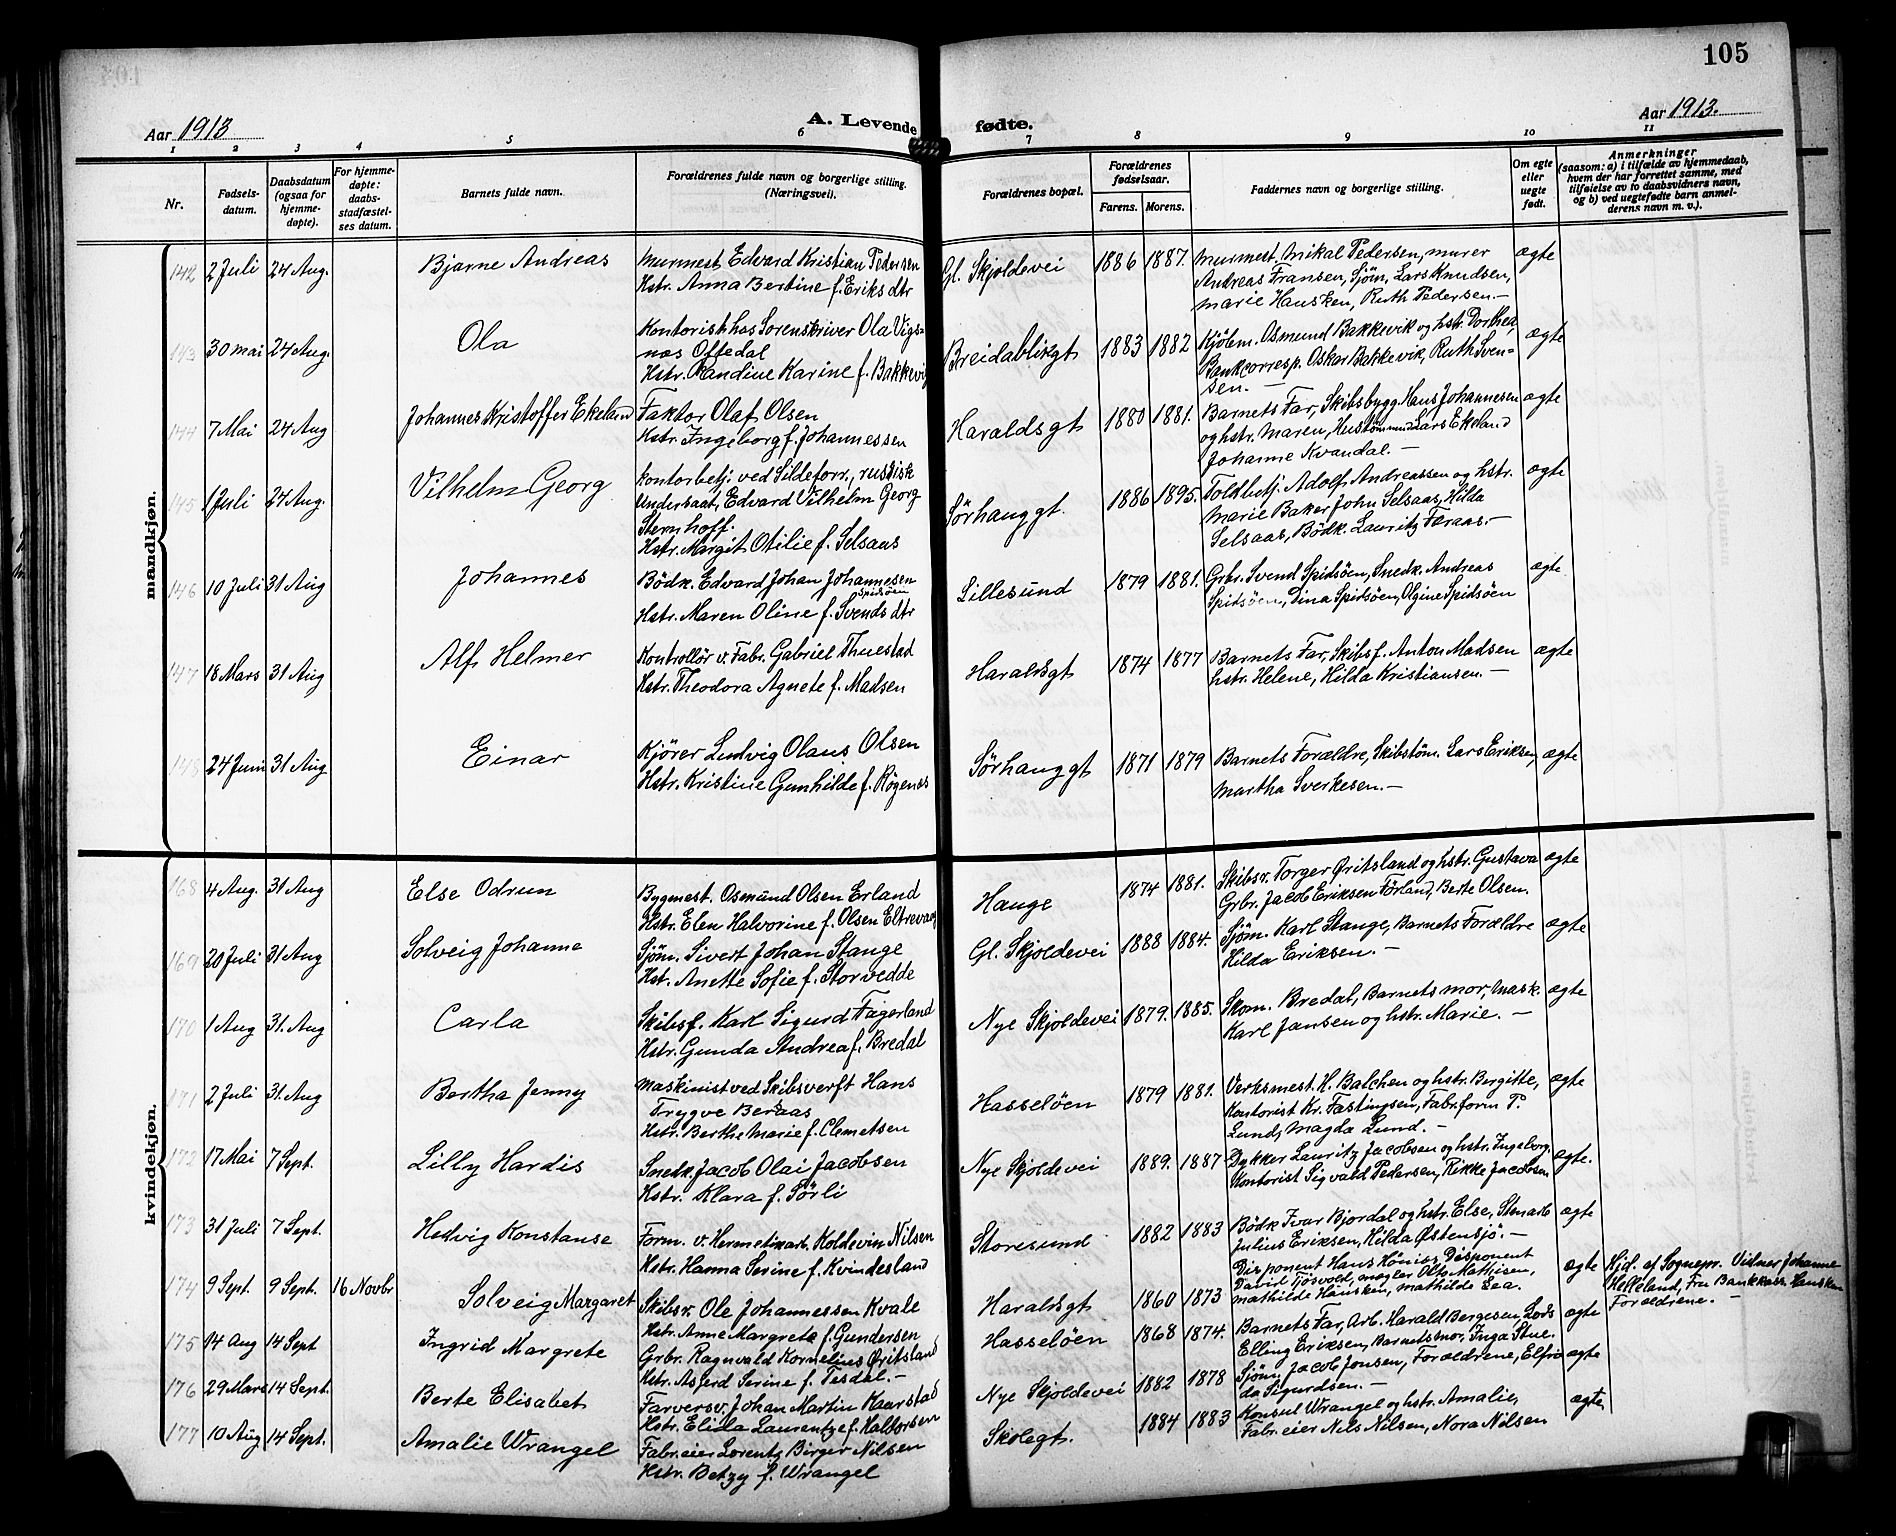 105
Aar 1913
A. Levende fødte.
Aar 1913.
1 2 3 4 5 6 7 8 9 10 11
Nr.
Fødsels-
datum.
Daabsdatum
(ogsaa for
hjemme-
døpte).
For hjemme-
døpte:
daabs-
stadfæstel-
ses datum.
Barnets fulde navn.
Forældrenes fulde navn og borgerlige stilling.
(Næringsvei).
Forældrenes bopæl.
Forældrenes
fødselsaar.
Farens. Morens.
Faddernes navn og borgerlige stilling.
Om egte
eller
uegte
født.
Anmerkninger
(saasom: a) i tilfælde av hjemmedaab,
hvem der har forrettet samme, med
tilføielse av to daabsvidners navn,
og b) ved uegtefødte barn anmel-
derens navn m. v.).
mandkjøn.
142 2 Juli 24 Aug. Bjarne Andreas
Murmest. Edvard Kristian Pedersen
Hstr. Anna Bertine f. Eriks dtr
Gl. Skjoldevei 1886 1887.
Murmest. Mikal Pedersen, murer
Andreas Fransen, Sjöm. Lars Knudsen,
Marie Hausken, Ruth Pedersen.—
ægte
143 30 Mai 24 Aug. Ola
Kontorist hos Sorenskriver Ola Vigs-
næs Offedal
Hstr. Randine Karine f. Bakkevig
Breidablikgt 1883 1882
Kjöbm. Osmund Bakkevik og hstr. Dorthea,
Bankcorresp. Oskar Bakkevik, Ruth Sven-
sen.—
ægte
144 7 Mai 24 Aug Johannes Kristoffer Ekeland
Faktor Olaf Olsen
Hstr. Ingeborg f. Johannessen
Haraldsgt 1880 1881.
Barnets Far, Skibsbygg. Hans Johannesen
og hstr. Maren, Hustömmand Lars Ekeland
Johanne Kvandal.—
ægte
145 1 Juli 24 Aug. Vilhelm Georg
Kontorbetj. ved Sildeforr., russisk
Undersaat, Edvard Vilhelm Georg
Sternhoff.
Hstr. Margit Otilie f. Selsaas
Sörhauggt. 1886 1895.
Toldbetj. Adolf Andreassen og hstr.
Marie Baker John Selsaas, Hilda
Selsaas, Bödk. Lauritz Færaas.—
ægte
146 10 Juli 31 Aug Johannes
Bödk. Edvard Johan Johannesen
Spidsöen
Hstr. Maren Oline f. Svends dtr
Lillesund 1879 1881.
Grbr. Svend Spidsöen, Snedk. Andreas
Spidsöen, Dina Spidsöen, Olgine Spidsöen
ægte
147 18 Mars 31 Aug Alf Helmer
Kontrollör v. Fabr. Gabriel Thuestad
Hstr. Theodora Agnete f. Madsen
Haraldsgt 1874 1877
Barnets Far, Skibsf. Anton Madsen
hstr. Helene, Hilda Kristiansen.—
ægte
148 24 Juni 31 Aug Einar
Kjörer Ludvig Olaus Olsen
Hstr. Kristine Gunhilde f. Rögenes
Sörhauggt 1871 1879
Barnets Forældre, Skibstöm. Lars Eriksen,
Martha Sverkesen.—
ægte
kvindekjøn.
168 4 Aug. 31 Aug Else Odrun
Bygmest. Osmund Olsen Erland
Hstr. Elen Halvorine f. Olsen Eltrevaag
Hauge 1874 1881.
Skibsr. Torger Øritsland og hstr. Gustava
Grbr. Jacob Eriksen Förland, Berte Olsen.
ægte
169 20 Juli 31 Aug Solveig Johanne
Sjöm. Sivert Johan Stange
Hst. Anette Sofie f. Storvedde
Gl. Skjoldevei 1888 1884.
Sjöm. Karl Stange, Barnets Forældre
Hilda Eriksen.—
ægte
170 1 Aug 31. Aug Carla
Skibsf. Karl Sigurd Fagerland
Hstr. Gunda Andrea f. Bredal
Nye Skjoldevei 1879. 1885.
Skom. Bredal, Barnets mor, Mask.
Karl Jansen og hstr. Marie.—
ægte
171 2 Juli 31 Aug Bertha Jenny
Maskinist ved Skibsverft Hans
Trygve Bersaas
Hstr. Berthe Marie f. Clemetsen
Hasselöen 1879 1881.
Verksmest. H. Balchen og hstr. Bergitte,
Kontorist Kr. Fastingsen, Fabr.form P.
Lund, Magda Lund.—
ægte
172 17 Mai 7 Sept. Lilly Hardis
Snedk. Jacob Olai Jacobsen
Hstr. Klara f. Sörli
Nye Skjoldevei 1889. 1887
Dykker Lauritz Jacobsen og hstr. Ingeborg.
Kontorist Sigvald Pedersen, Rikke Jacobsen
ægte.
173 31 Juli 7 Sept. Hedvig Konstanse
Form. v. Hermetikarb. Koldevin Nilsen
Hstr. Hanna Serine f. Kvindesland
Storesund 1882 1883
Bödk Ivar Bjordal og hstr. Else, Stenarb
Julius Eriksen, Hilda Østensjö.—
ægte
174 9 Sept. 9 Sept. 16 Novbr Solveig Margaret
Skibsr. Ole Johannessen Kvale
Hstr. Anne Margrete f. Gundersen
Haraldsgt 1860 1873
Disponent Hans Hönias, Disponent
David Tösvold, Mægler Olto Mathisen,
Mathilde Hausken, Mathilde Lea.
ægte
Hjd. af Sognepr. Vilner Johanne
Helleland, Fru Bankkass. Hausken
Forældrene.—
175 14 Aug 14 Sept Ingrid Margrete
Grbr. Ragnvald Kornelius Øritsland
Hstr. Asferd Serine f. Tesdal.—
Hasselöen 1868 1874.
Barnets Far, Arb. Harald Bergesen, Lods
Elling Eriksen, Barnets mor, Inga Stue.
ægte
176 29 Mars 14 Sept. Berte Elisabet
Farversv. Johan Martin Kaarstad
Hstr. Elida Laurentze f. Haldorsen
Nye Skjoldevei 1882 1878
Sjöm. Jacob Jonsen, Forældrene, Elfri-
da Sigurdsen.—
ægte
177 10 Aug 14 Sept. Amalie Wrangel
Fabr.eier Lorentz Birger Nilsen
Hstr. Betzy f. Wrangel
Skolegt. 1884 1883
Konsul Wrangel og hstr. Amalie,
Fabr. eier Nils Nilsen, Nora Nilsen
ægte